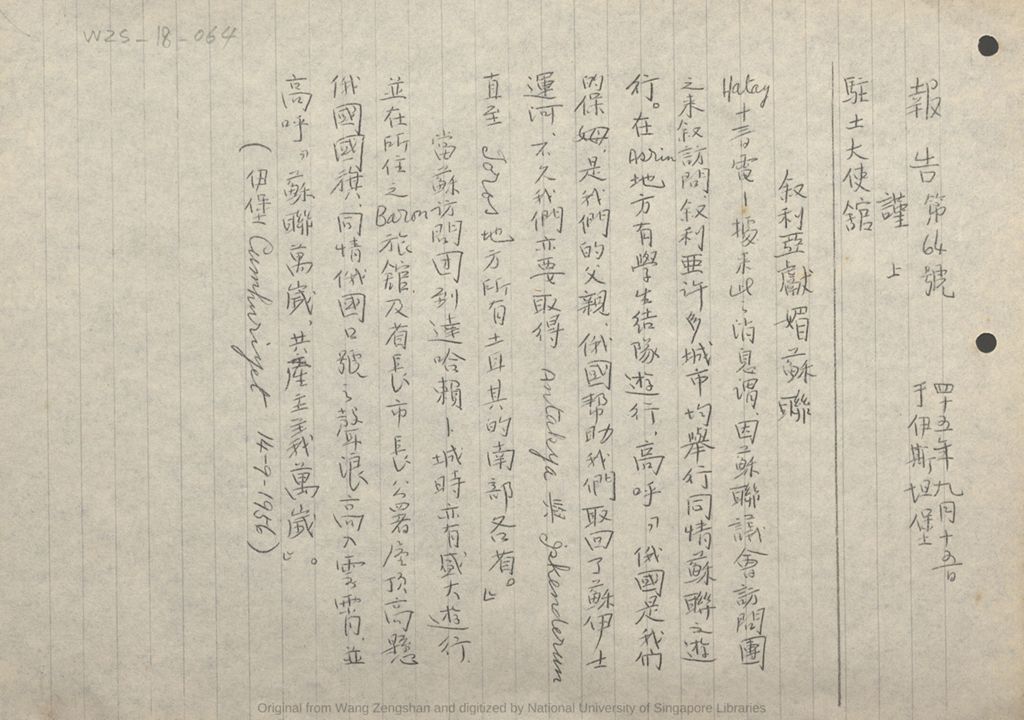 WZS-18-064
報告第64號
四十五年九月十五日
于伊斯坦堡
謹上
駐土大使舘
叙利亞獻媚蘇聯
Hatay十三日電—據來此之消息謂、因蘇聯議會訪問團
之來叙訪問、叙利亜许多城市均舉行同情蘇聯之遊
行。在 地方有學生結隊遊行、高呼「俄國是我們
的保姆、是我們的父親、俄國帮助我們取回了蘇伊士
運河、不久我們亦要取得 Antakya 與 Iskenderun
直至 地方所有土耳其的南部各省。」
當蘇訪問团到達哈賴卜城時亦有盛大遊行
並在所住之Baron旅舘及省長市長公署屋頂高懸
俄國國旗、同情俄國口號之聲浪高入雲霄、並
高呼「蘇聯萬歲、共產主義萬歲」。
(伊堡 Cumhuriyet 14-9-1956)
Original from Wang Zengshan and digitized by National University of Singapore Libraries